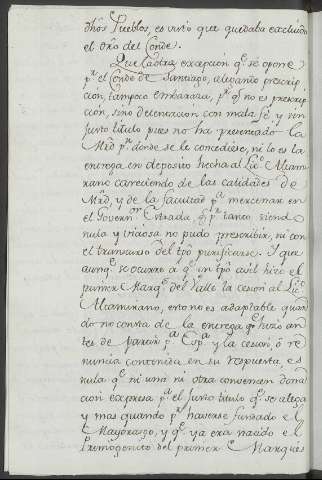 dhōs Pueblos, es visto que quedaba excluido
el dro del Conde.
Que la otra excepcion q.e se opone
p.r el Conde de Santiago, alegando prescrip
cion, tampoco embaraza, p.r q.e no es prescrip
cion, sino detentacion con mala fé, y sin
justo titulo pues no ha presentado la
Mrd p.r donde se le concediese, ni lo es la
entrega en deposito hecha al Lic.o Altamirano
rano careciendo de las calidades de
Mrd, y de la facultad p.a mercenar en
el Govern.or Estrada, q.e p.r tanto siendo
nula y viciosa no pudo prescribir, ni con
el transcurso del tpō purificarse. Y que
aunq.e se ocurre á q.e un tpō ávil hizo el
primer Marq.s del Valle la cesion al Lic.do
Altamirano, esto no es adaptable quan
do no consta de la entrega q.e hizo an
tes de partir p.a Esp.a y la cesion, ó re
nuncia contenida en su respuesta, es
nula q.e ni uni ni otra convencen dona
cion expresa p.a el justo titulo q.e se alega
y mas quando p.r haverse fundado el
Mayorasgo, y q.e ya era nacido el
Primogenito del primer Marques